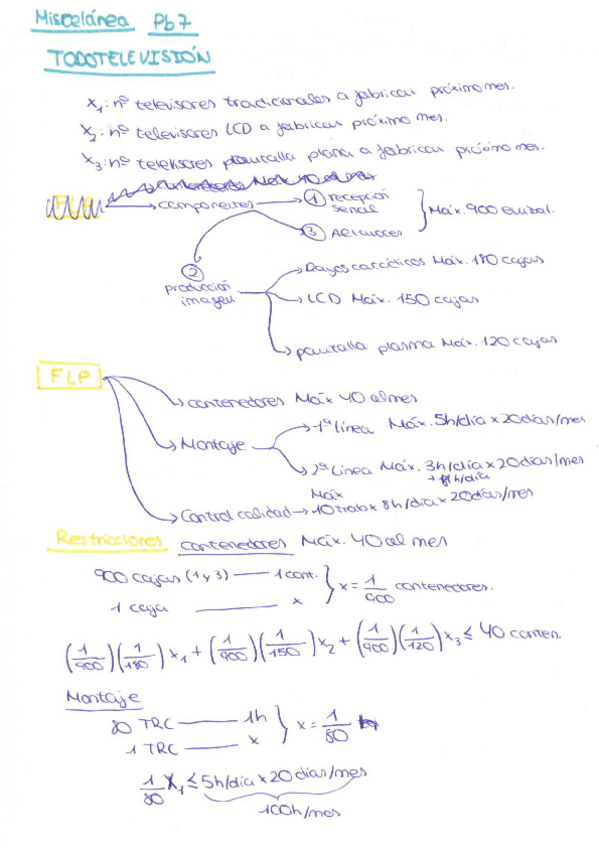 Miscelánea Pb7
TODOTELEVISIÓN
x₁: nº televisores tradicionales a fabricar próximo mes.
x₂: nº televisores LCD a fabricar próximo mes.
x₃: nº televisores pantalla plana a fabricar próximo mes.
componentes
① recepción señal
③ Altavoces
Máx. 900 embal.
② producción imagen
Rayos catódicos Máx. 180 cajas
LCD Máx. 150 cajas
pantalla plasma Máx. 120 cajas
FLP
contenedores Máx 40 al mes
Montaje
1ª línea Máx. 5h/día x 20días/mes
2ª línea Máx. 3h/día x 20días/mes
h/día
Control calidad → Máx 10 trab x 8h/día x 20días/mes
Restricciones contenedores Máx. 40 al mes
900 cajas (1 y 3) — 1 cont.
1 caja — x
x = 1/900 contenedores.
(1/900)(1/180) x₁ + (1/900)(1/150) x₂ + (1/900)(1/120) x₃ ≤ 40 conten.
Montaje
80 TRC — 1h
1 TRC — x
x = 1/80
1/80 x₁ ≤ 5h/día x 20 días/mes
100h/mes